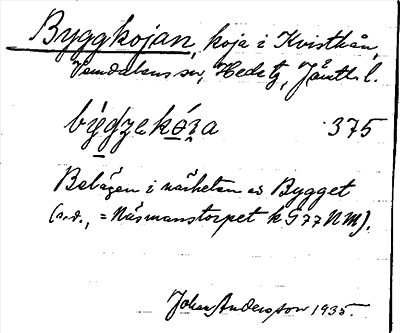 Byggkojan, koja i Kvistkån,
Vemdalens sn, Hede tg, Jämtl. l.
býg̀ʒekǫ́ɜ̨a 375
Belägen i närheten av Bygget
(s.d., = Näsmanstorpet k G 77 N M).
Johan Andersson 1935.